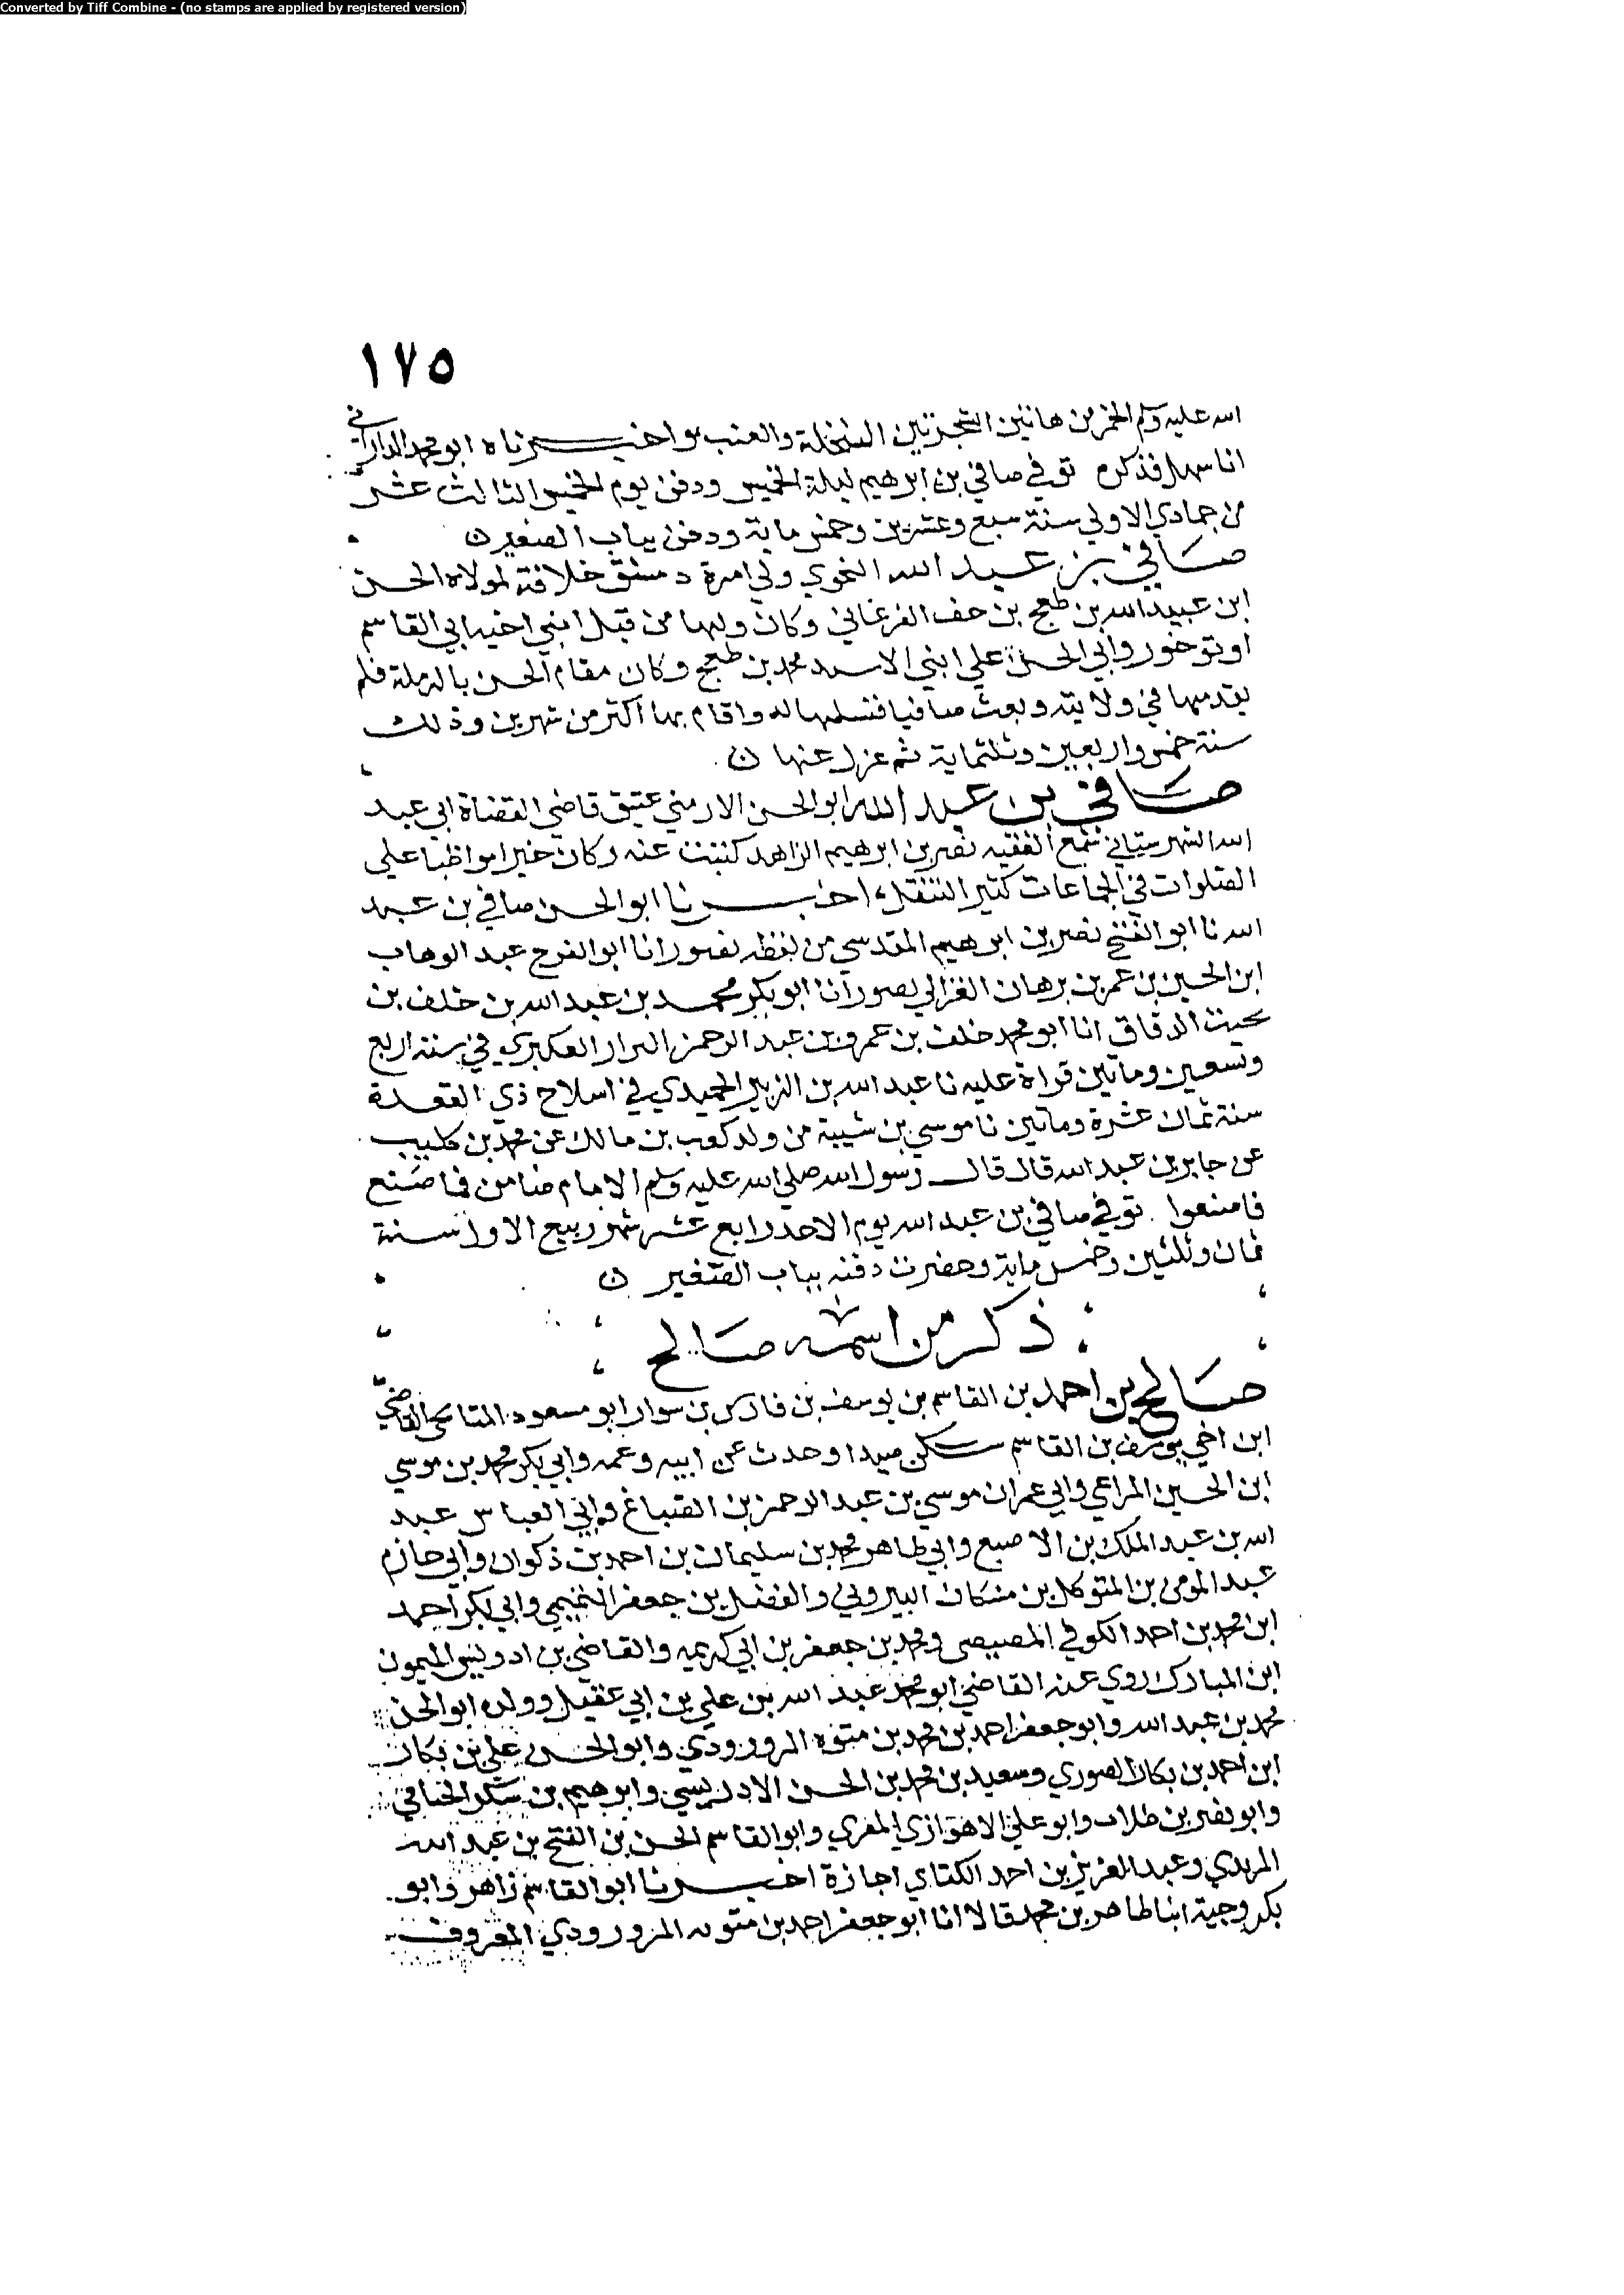 Converted by Tiff Combine - (no stamps are applied by registered version)
١٧٥
الله عليه وسلم الخمر من هاتين الشجرتين النخلة والعنب واخبرناه ابو محمد الداراني
انا سهل فذكره توفي صافي بن ابرهيم ليلة الخميس ودفن يوم الخميس الثالث عشر
من جمادي الاولي سنة سبع وعشرين وخمس ماية ودفن بباب الصغير ن
صافي بن عبد الله النحوي ولي امرة دمشق خلافة لمولاه الحسن
ابن عبيد الله بن طغج بن جف الفرغاني وكان وليها من قبل ابني اخيه ابي القاسم
اونوجور وابي الحسن علي ابني الاسيد محمد بن طغج وكان مقام الحسن بالرملة فلم
يقدمها في ولايته وبعث صافيا فتسلمها له واقام بها اكثر من شهرين وذلك
سنة خمس واربعين وثلثماية ثم عزل عنها ن
صافي بن عبد الله ابو الحسن الارمني عتيق قاضي القضاة ابي عبد
الله الشهرستاني سمع الفقيه نصر بن ابرهيم الزاهد كتبت عنه وكان خيرا مواظبا علي
الصلوات في الجماعات كثير التنقل اخبرنا ابو الحسن صافي بن عبد
الله نا ابو الفتح نصر بن ابرهيم المقدسي من لفظه بصور انا ابو الفرج عبد الوهاب
ابن الحسين بن عمر بن برهان الغزالي بصور انا ابو بكر محمد بن عبد الله بن خلف بن
بحيت الدقاق انا ابو محمد خلف بن عمرو بن عبد الرحمن البزار العكبري في سنة اربع
وتسعين وماتين قراة عليه نا عبد الله بن الزبير الحميدي في اسلاح ذي القعدة
سنة ثمان عشرة وماتين نا موسي بن شيبة من ولد كعب بن مالك عن محمد بن كليب
عن جابر بن عبد الله قال قال رسول الله صلي الله عليه وسلم الامام ضامن فما صنع
فاصنعوا توفي صافي بن عبد الله يوم الاحد رابع عشر شهر ربيع الاول سنة
ثمان وثلثين وخمس ماية وحضرت دفنه بباب الصغير ن
ذكر من اسمه صالح
صالح بن احمد بن القاسم بن يوسف بن فارس بن سوار ابو مسعود الميانجي القاضي
ابن اخي يوسف بن القاسم سكن صيدا وحدث عن ابيه وعمه وابي بكر محمد بن موسي
ابن الحسين المراعي وابي عمران موسي بن عبد الرحمن بن الصباغ وابي العباس عبد
الله بن عبد الملك بن الاصبع وابي طاهر محمد بن سليمان بن احمد بن ذكوان وابي حازم
عبد المومن بن المتوكل بن مشكان البيروتي والفضل بن جعفر التميمي وابي بكر احمد
ابن محمد بن احمد الكوفي المصيصي ومحمد بن جعفر بن ابي كريمه والقاضي بن ادريس الميمون
ابن المبارك روي عنه القاضي ابو محمد عبد الله بن علي بن ابي عقيل وولده ابو الحسن
محمد بن عبد الله وابو جعفر احمد بن محمد بن متوه المروروذي وابو الحسن علي بن بكار
ابن احمد بن بكار الصوري وسعيد بن محمد بن الحسن الادريسي وابرهيم بن شكر الخنافي
وابو نصر بن طلاب وابو علي الاهوازي المقري وابو القاسم الحسن بن الفتح بن عبد الله
المريدي وعبد العزيز بن احمد الكتاني اجازة اخبرنا ابو القاسم زاهر وابو
بكر وجيه ابنا طاهر بن محمد قالا انا ابو جعفر احمد بن متويه المروروذي المعروف